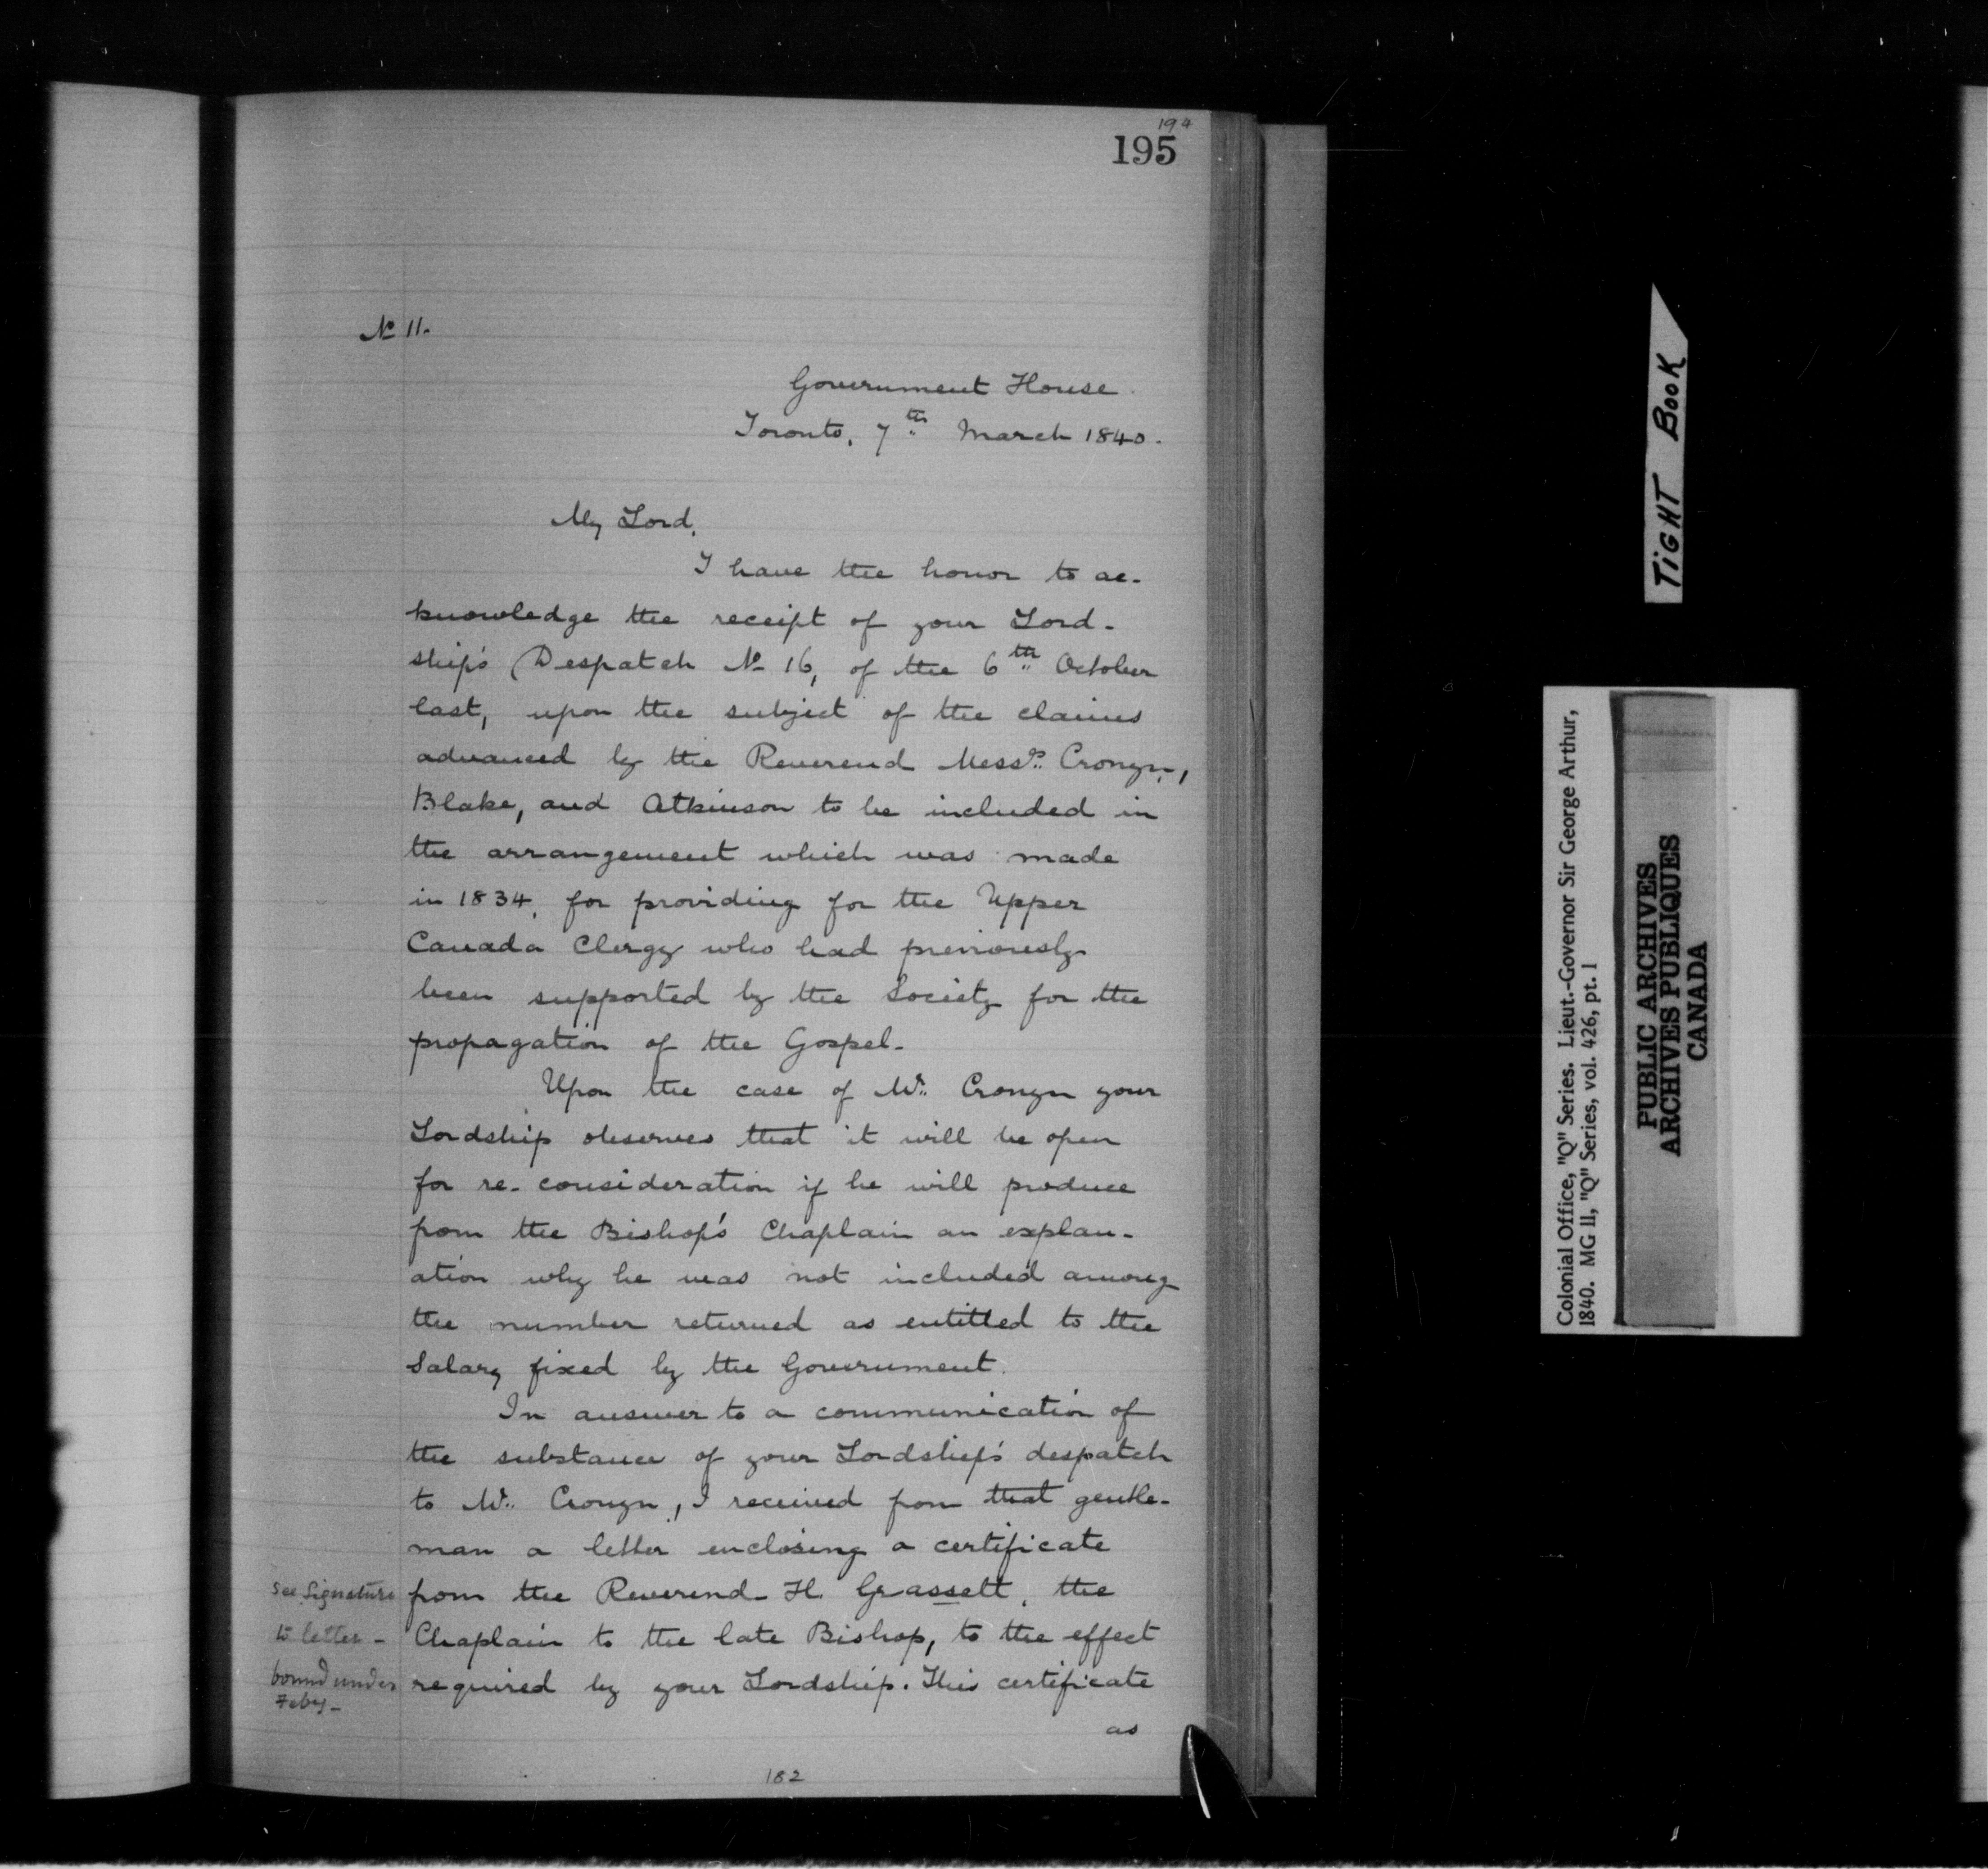 194
195
№ 11.
Government House.
Toronto, 7th March 1840.
My Lord,
I have the honor to ac-
knowledge the receipt of your Lord-
ship's Despatch № 16, of the 6th October
last, upon the subject of the claims
advanced by the Reverend Messrs. Cronyn,
Blake, and Atkinson to be included in
the arrangement which was made
in 1834, for providing for the Upper
Canada Clergy who had previously
been supported by the Society for the
propagation of the Gospel.
Upon the case of Mr. Cronyn your
Lordship observes that it will be open
for re-consideration if he will produce
from the Bishop's Chaplain an explan-
ation why he was not included among
the number returned as entitled to the
Salary fixed by the Government.
In answer to a communication of
the substance of your Lordship's despatch
to Mr. Cronyn, I received from that gentle-
man a letter enclosing a certificate
from the Reverend H. Grassett, the
Chaplain to the late Bishop, to the effect
required by your Lordship. This certificate
as
see Signature
to letter -
bound under
Feby -
182
TIGHT BOOK
Colonial Office, "Q" Series. Lieut.-Governor Sir George Arthur,
1840. MG 11, "Q" Series, vol. 426, pt. 1
PUBLIC ARCHIVES
ARCHIVES PUBLIQUES
CANADA